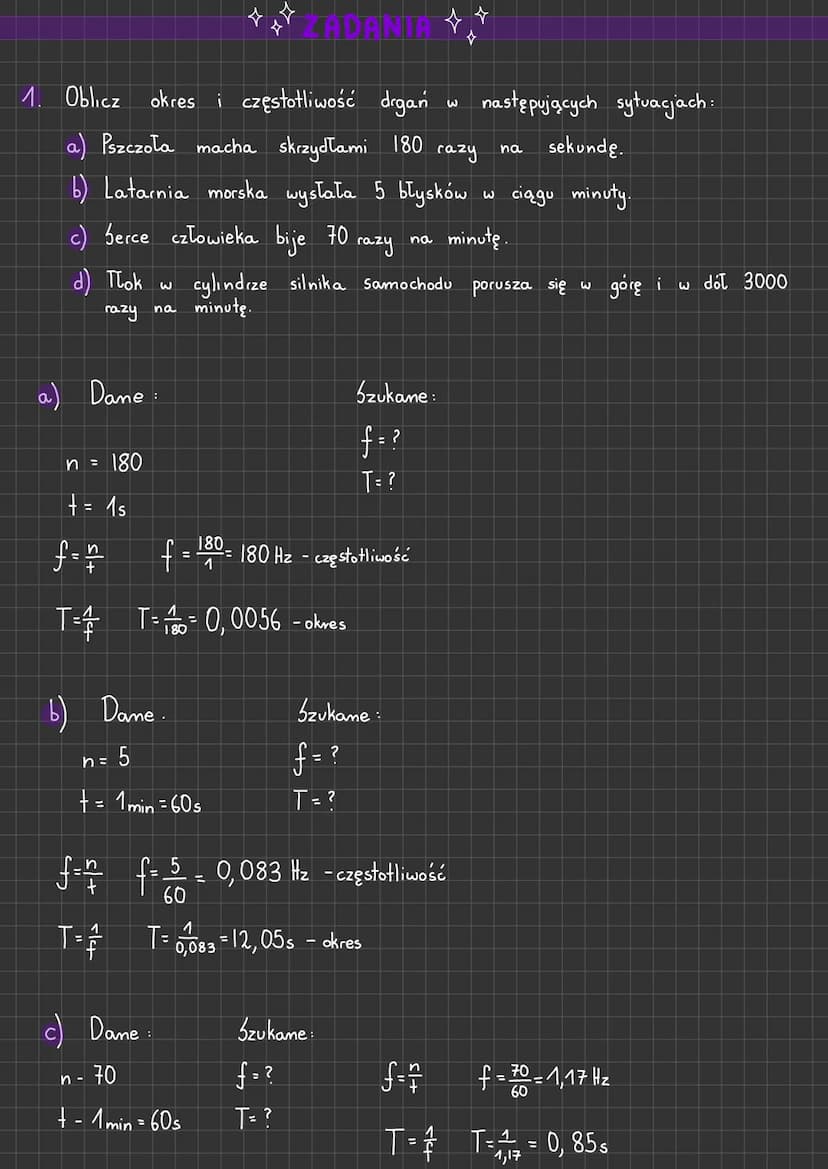 ZADANIA
1. Oblicz okres i częstotliwość drgań w następujących sytuacjach:
a) Pszczoła macha skrzydłami 180 razy na sekundę.
b) Latarnia morska wysłała 5 błysków w ciągu minuty.
c) Serce człowieka bije 70 razy na minutę.
d) Tłok w cylindrze silnika samochodu porusza się w górę i w dół 3000
razy na minutę.
a) Dane: Szukane:
f = ?
n = 180
T = ?
t = 1s
f = n/t f = 180/1 = 180 Hz - częstotliwość
T = 1/f T = 1/180 = 0,0056 - okres
b) Dane. Szukane:
n = 5 f = ?
t = 1min = 60s T = ?
f = n/t f = 5/60 = 0,083 Hz - częstotliwość
T = 1/f T = 1/0,083 = 12,05s - okres
c) Dane: Szukane:
n - 70 f = ? f = n/t f = 70/60 = 1,17 Hz
t - 1min = 60s T = ?
T = 1/f T = 1/1,17 = 0,85s